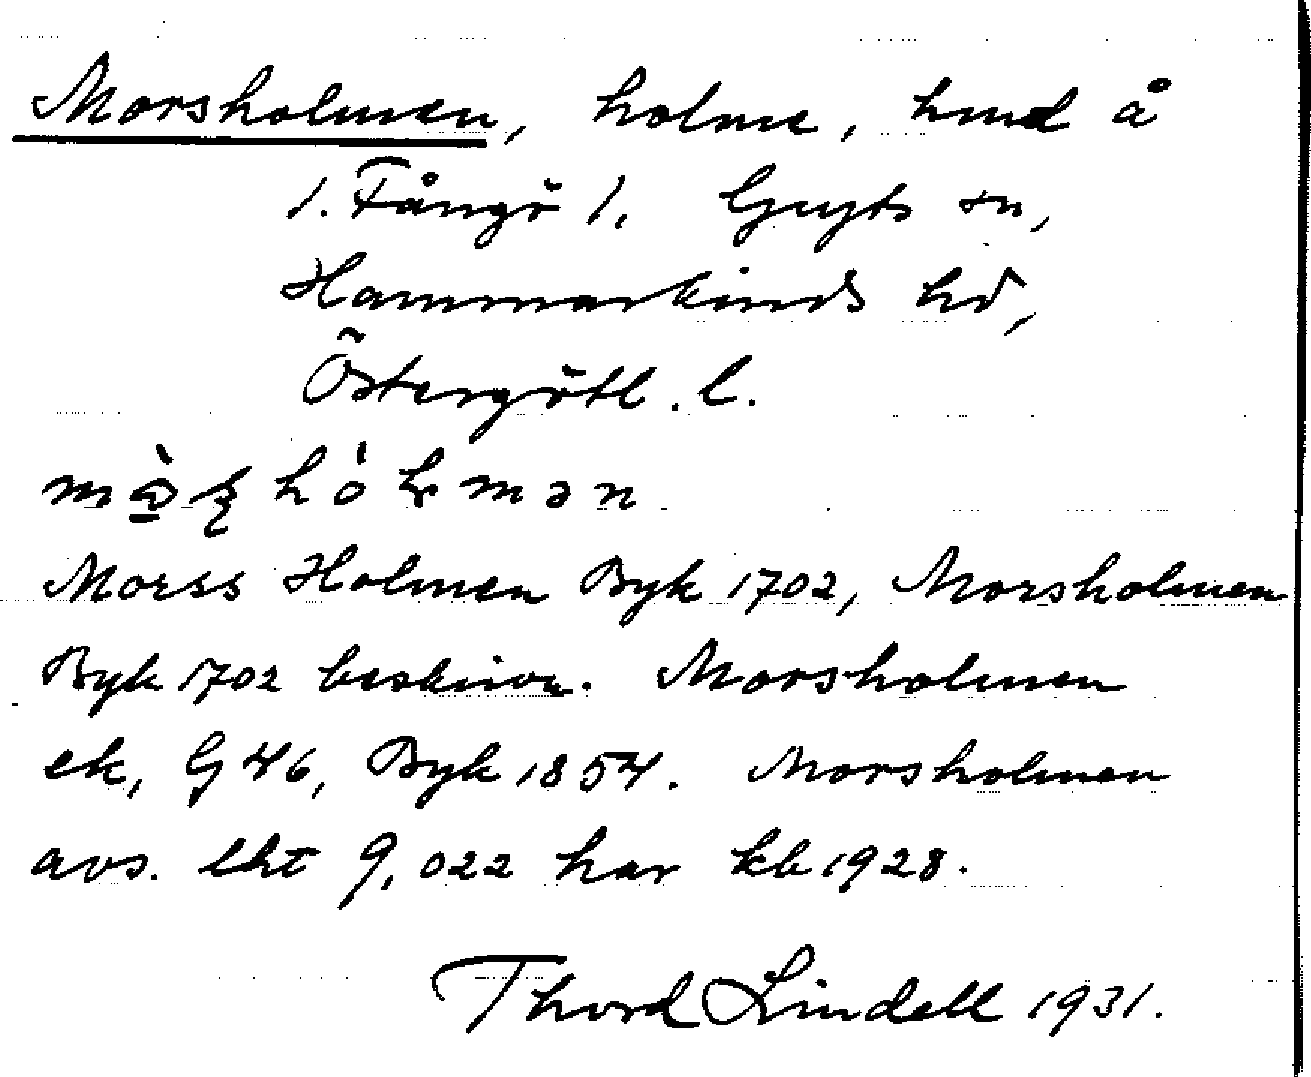 Morsholmen, holme, hmd å
1. Fångö 1, Gryts sn,
Hammarkinds hd,
Östergötl. l.
Morss Holmen Byk 1702, Morsholmen
Byk 1702 beskrivn. Morsholmen
ek, G 46, Byk 1854. Morsholmen
avs. lht 9,022 har kb 1928.
Thord Lindell 1931.